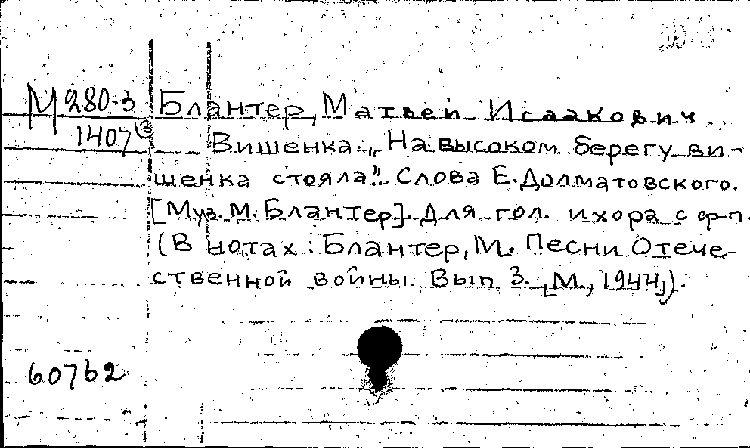 М 280-3 Блантер, Матвей Исаакович.
1407
Вишенка: „На высоком берегу ви-
шенка стояла". Слова Е. Долматовского.
[Муз. М. Блантер]. Для гол. и хора с ф-п.
(В нотах: Блантер, М. Песни Отече-
ственной войны. Вып. 3. [М., 1944]).
60762